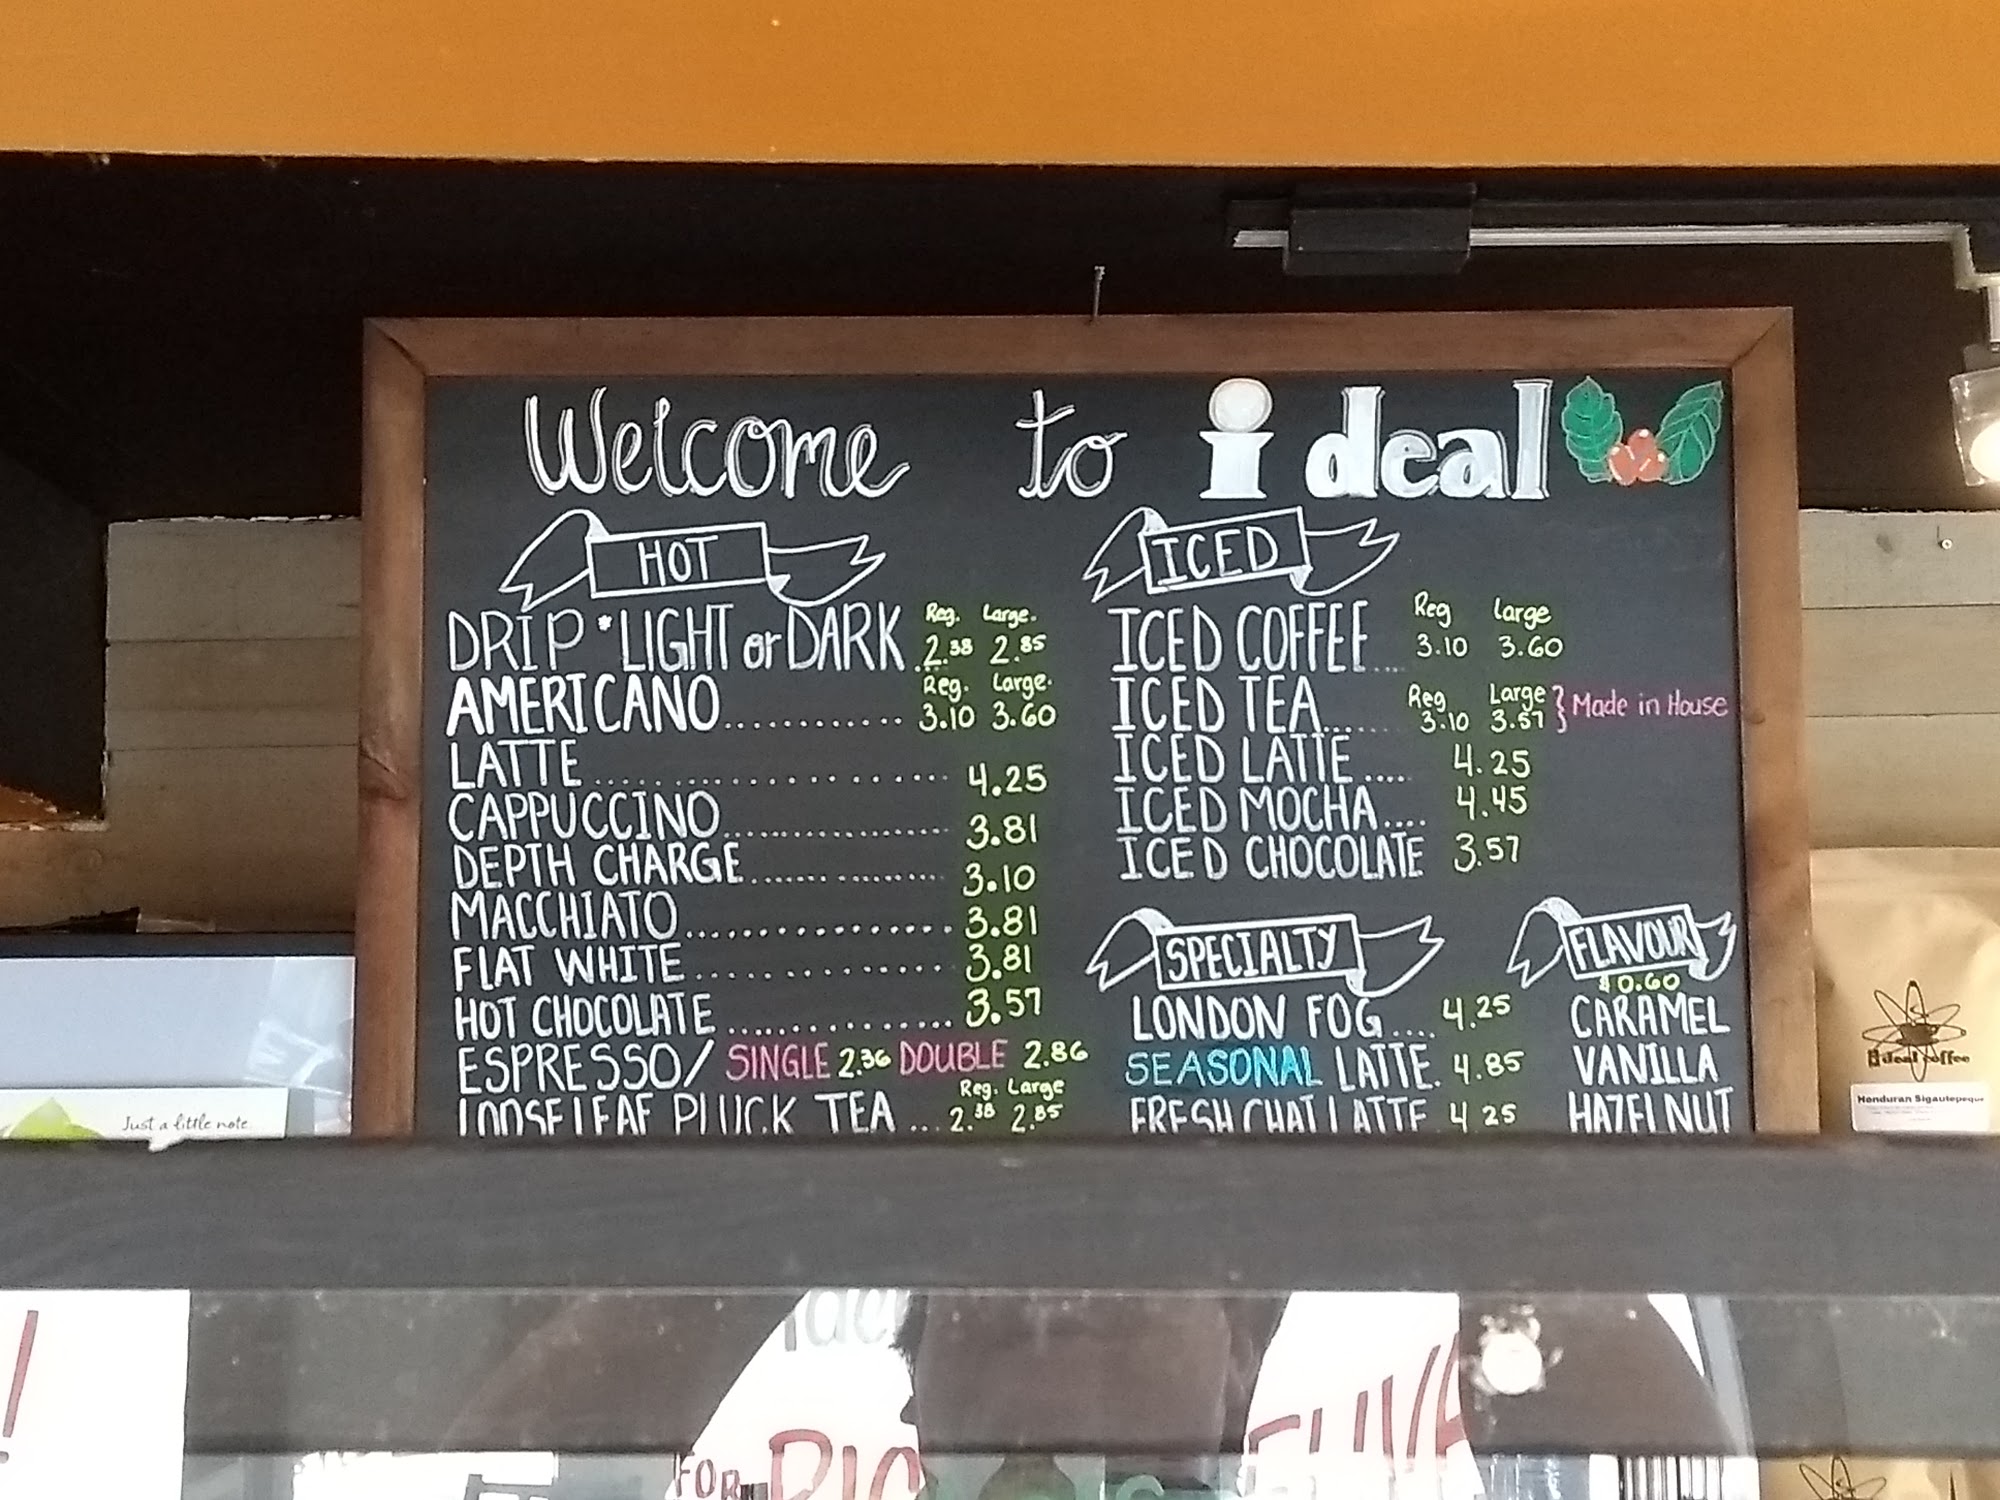 Welcome to ideal
HOT
Reg. Large.
DRIP *LIGHT or DARK .2.38 2.85
Reg. Large.
AMERICANO............ 3.10 3.60
LATTE................ 4.25
CAPPUCCINO................ 3.81
DEPTH CHARGE................ 3.10
MACCHIATO................ 3.81
FLAT WHITE............... 3.81
HOT CHOCOLATE............... 3.57
ESPRESSO/ SINGLE 2.36 DOUBLE 2.86
Reg. Large
LOOSE LEAF PLUCK TEA ... 2.38 2.85
ICED
Reg Large
ICED COFFEE.... 3.10 3.60
Reg Large
ICED TEA....... 3.10 3.57 } Made in House
ICED LATTE .... 4.25
ICED MOCHA.... 4.45
ICED CHOCOLATE 3.57
SPECIALTY
LONDON FOG.... 4.25
SEASONAL LATTE. 4.85
FRESH CHAI LATTE 4.25
FLAVOUR
$0.60
CARAMEL
VANILLA
HAZELNUT
Just a little note
ideal coffee
Honduran Sigautepeque
!
FOR